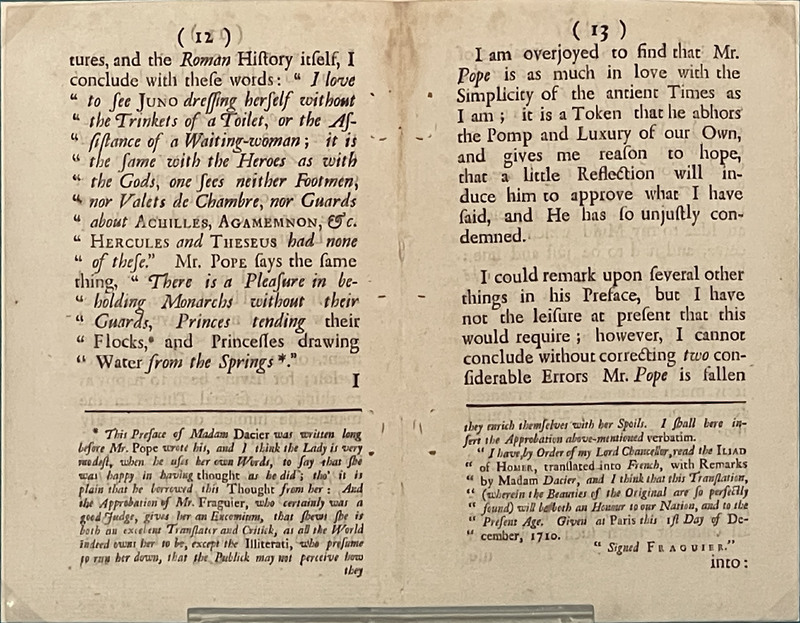 ( 12 )
tures, and the Roman Hiſtory itſelf, I
conclude with theſe words: “ I love
“ to ſee JUNO dreſſing herſelf without
“ the Trinkets of a Toilet, or the Aſ-
“ ſiſtance of a Waiting-woman; it is
“ the ſame with the Heroes as with
“ the Gods, one ſees neither Footmen,
“ nor Valets de Chambre, nor Guards
“ about ACHILLES, AGAMEMNON, &c.
“ HERCULES and THESEUS had none
“ of theſe.” Mr. POPE ſays the ſame
thing, “ There is a Pleaſure in be-
“ holding Monarchs without their
“ Guards, Princes tending their
“ Flocks, and Princeſſes drawing
“ Water from the Springs *.”
I
* This Preface of Madam Dacier was written long
before Mr. Pope wrote his, and I think the Lady is very
modeſt, when he uſes her own Words, to ſay that ſhe
was happy in having thought as he did; tho' it is
plain that he borrowed this Thought from her: And
the Approbation of Mr. Fraguier, who certainly was a
good Judge, gives her an Encomium, that ſhews ſhe is
both an excelent Tranſlater and Critick, as all the World
indeed owns her to be, except the Illiterati, who preſume
to run her down, that the Publick may not perceive how
they
( 13 )
I am overjoyed to find that Mr.
Pope is as much in love with the
Simplicity of the antient Times as
I am; it is a Token that he abhors
the Pomp and Luxury of our Own,
and gives me reaſon to hope,
that a little Reflection will in-
duce him to approve what I have
ſaid, and He has ſo unjuſtly con-
demned.
I could remark upon ſeveral other
things in his Preface, but I have
not the leiſure at preſent that this
would require; however, I cannot
conclude without correcting two con-
ſiderable Errors Mr. Pope is fallen
they enrich themſelves with her Spoils. I ſhall here in-
ſert the Approbation above-mentioned verbatim.
“ I have, by Order of my Lord Chancellor, read the ILIAD
“ of HOMER, tranſlated into French, with Remarks
“ by Madam Dacier, and I think that this Tranſlation,
“ (wherein the Beauties of the Original are ſo perfectly
“ found) will be both an Honour to our Nation, and to the
“ Preſent Age. Given at Paris this 1ſt Day of De-
“ cember, 1710.
“ Signed FRAGUIER.”
into: